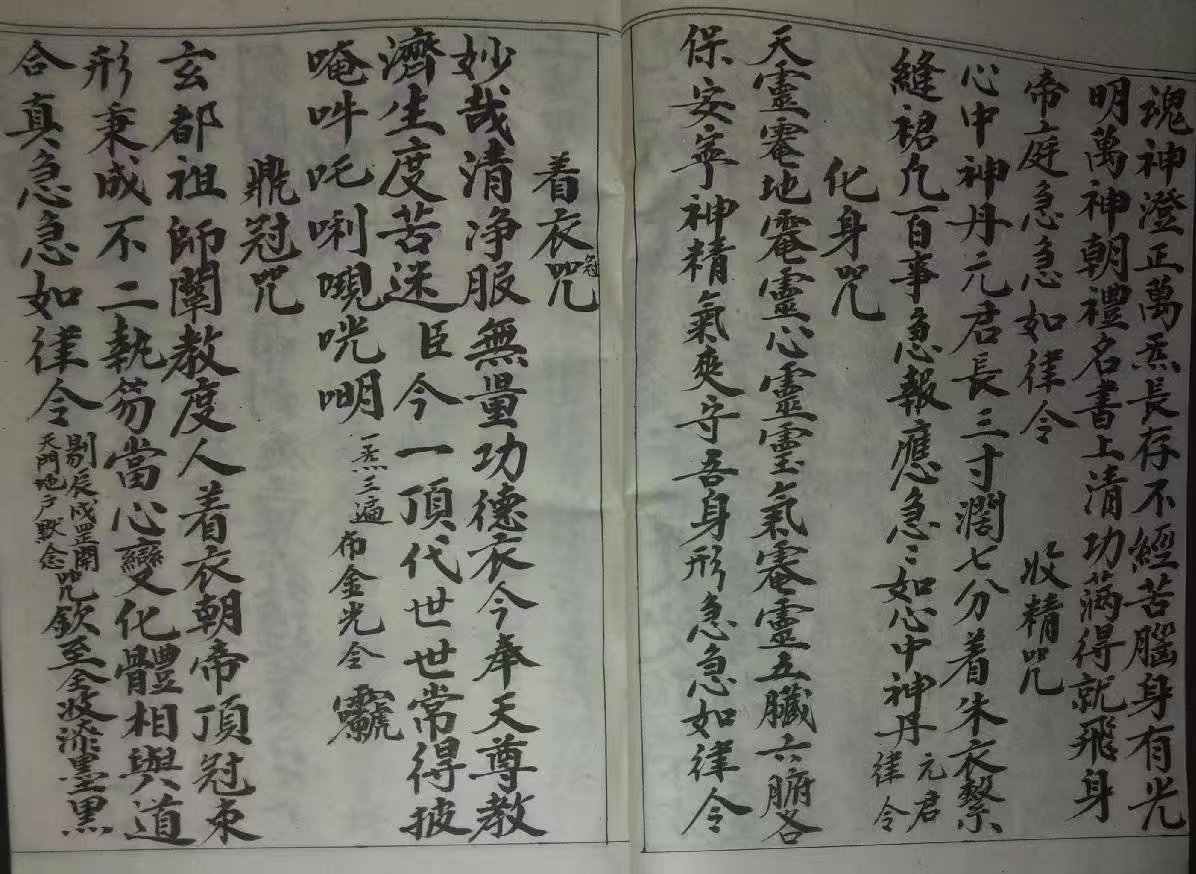 魂神澄正萬炁長存不經苦腦身有光
明萬神朝禮名書上清功蒲得就飛身
帝庭急急如律令
收精咒
心中神丹元君長三寸濶七分着朱衣繫
縫裙凢百事急報應急〻如心中神丹元君律令
化身咒
天靈霐地靈心靈氣靈五臟六腑各
保安寧神精氣爽守吾身形急急如律令
着衣咒
妙哉清净服無量功德衣今奉天尊教
濟生度苦迷臣今一頂代世世常得披
唵吽吒唎 咣明一炁三遍布金光令
冠咒
玄都祖師闡教度人着衣朝帝頂冠束
形秉成不二執笏當心變化體相與道
合真急急如律令
剔辰戌罡開
天門地户默念
咒欽至全收漆墨黑